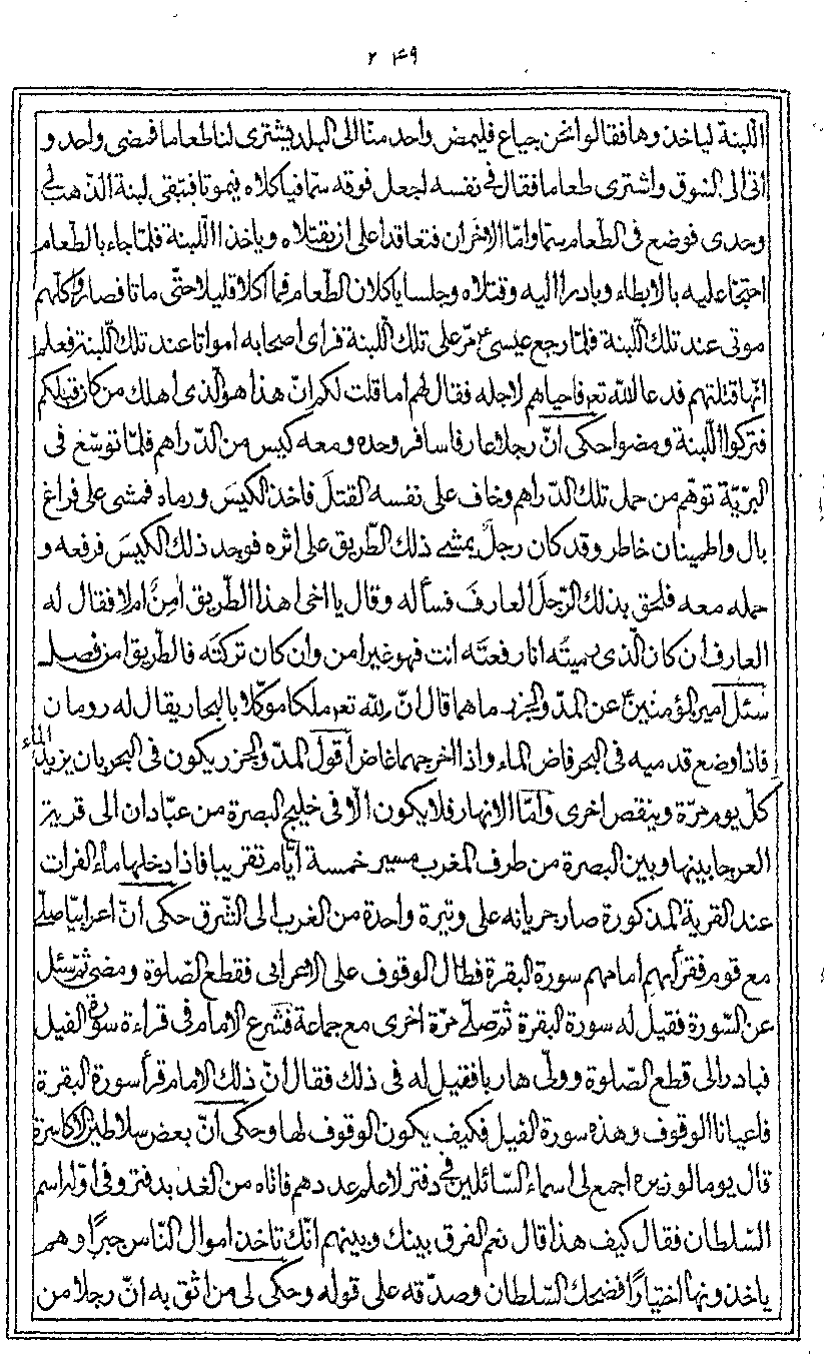 ۲۴۹
اللبنة لياخذوها فقالوا نحن جياع فليمض واحد منّا الى البلد يشترى لنا طعاما فمضى واحد و
اتى الى السوق واشترى طعاما فقال فى نفسه اجعل فوقه سمّا فياكلاه فيموتا فتبقى لبنة الذهب لى
وحدى فوضع فى الطعام سمّا وامّا الاخران فتعاقدا على ان يقتلاه وياخذا اللبنة فلمّا جاء بالطعام
احتجّا عليه بالابطاء وبادرا اليه وقتلاه وجلسا ياكلان الطعام فما اكلا قليلا حتّى ماتا فصاروا كلّهم
موتى عند تلك اللبنة فلمّا رجع عيسى ع مرّ على تلك اللبنة فراى اصحابه امواتا عند تلك اللبنة فعلم
انّها قتلتهم فدعا الله تعر فاحياهم لاجله فقال لهم اما قلت لكم انّ هذا هو الّذى اهلك من كان قبلكم
فتركوا اللبنة ومضوا حكى انّ رجلا عارفا سافر وحده ومعه كيس من الدّراهم فلمّا توسّع فى
البرّيّة توهّم من حمل تلك الدّراهم وخاف على نفسه القتلَ فاخذ الكيسَ ورماه فمشى على فراغ
بال واطمينان خاطر وقد كان رجلٌ يمشى ذلك الطّريق على اثره فوجد ذلك الكيسَ فرفعه و
حمله معه فلحق بذلك الرّجلَ العارفَ فسأله وقال يا اخى هذا الطّريق امِنٌ ام لا فقال له
العارف ان كان الّذى رميتُه انا رفعتَه انت فهو غير امن وان كان تركتَه فالطّريق امن فصل
سُئل امير المؤمنين ع عن المدّ والجزر ما هما قال انّ لله تعر ملكا موكّلا بالبحار يقال له رومان
فاذا وضع قدميه فى البحر فاض الماء واذا اخرجهما غاض اقول المدّ والجزر يكون فى البحر بان يزيد الماء
كلّ يوم مرّة وينقص اخرى وامّا الانهار فلا يكون الّا فى خليج البصرة من عبّادان الى قرية
العرجا بينها وبين البصرة من طرف المغرب مسير خمسة ايّام تقريبا فاذا دخلها ماء الفرات
عند القرية المذكورة صار جريانه على وتيرة واحدة من الغرب الى الشّرق حكى انّ اعرابيّا صلّى
مع قوم فقرأ بهم امامهم سورة البقرة فطال الوقوف على الاعرابى فقطع الصّلوة ومضى ثمّ سئل
عن السّورة فقيل له سورة البقرة ثمّ صلّى مرّة اخرى مع جماعة فشرع الامام فى قراءة سورة الفيل
فبادر الى قطع الصّلوة وولّى هاربا فقيل له فى ذلك فقال انّ ذلك الامام قرأ سورة البقرة
فاعيانا الوقوف وهذه سورة الفيل فكيف يكون الوقوف لها وحكى انّ بعض سلاطين الاكاسرة
قال يوما لوزيره اجمع لى اسماء السّائلين فى دفتر لاعلم عددهم فاتاه من الغد بدفتر وفى اوّله اسم
السّلطان فقال كيف هذا قال نعم الفرق بينك وبينهم انّك تاخذ اموال النّاس جبرًا وهم
ياخذونها اختيارًا فضحك السّلطان وصدّقه على قوله وحكى لى من اثق به انّ رجلا من